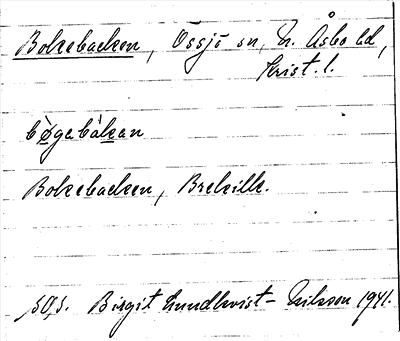 Bokebacken, Össjö sn, N. Åsbo hd,
Krist. l.
bø̀gabàkan
Bokebacken, Brekille.
Birgit Lundkvist-Nilsson 1941.